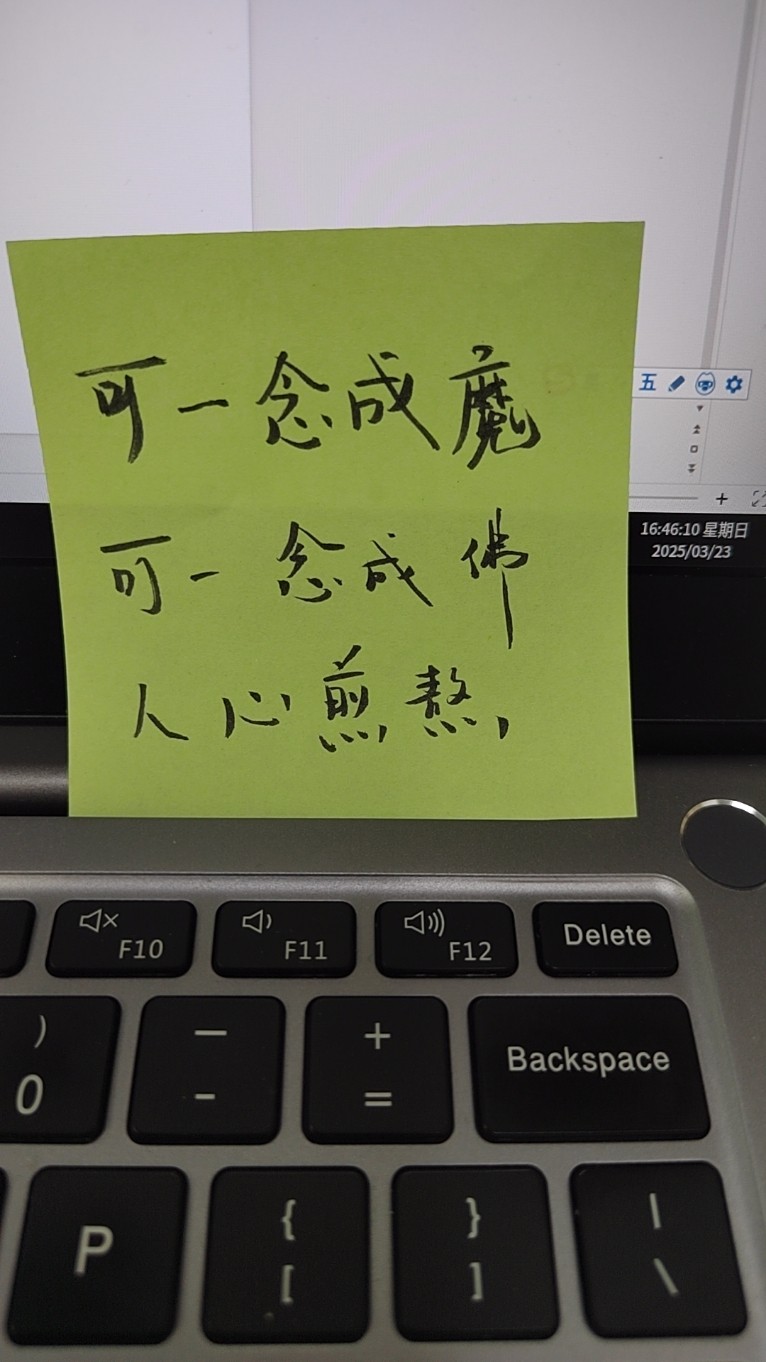 可一念成魔
可一念成佛
人心煎熬
五
16:46:10 星期日
2025/03/23
F10
F11
F12
Delete
)
0
—
-
+
=
Backspace
P
{
[
}
]
|
\